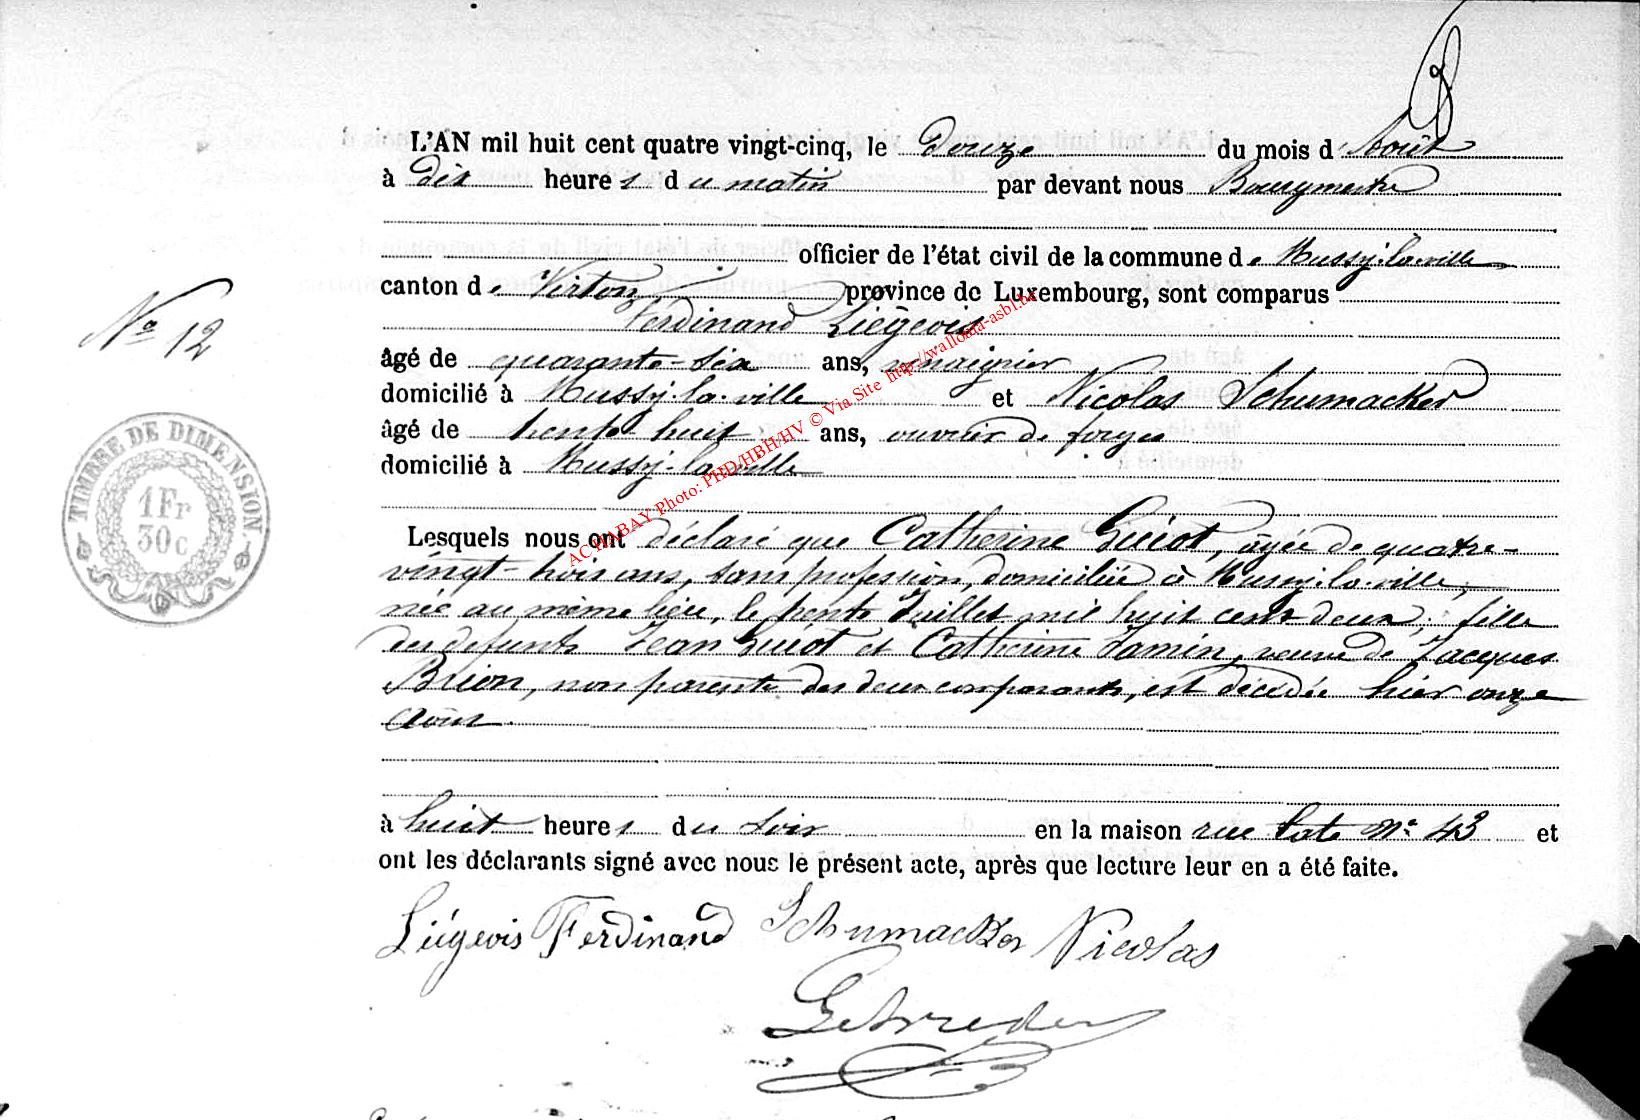 L'AN mil huit cent quatre vingt-cinq, le Douze du mois d'Août
à dix heures du matin par devant nous Bourgmestre
officier de l'état civil de la commune de Mussy-la-ville
canton de Virton, province de Luxembourg, sont comparus
N° 12
Ferdinand Liégeois
âgé de quarante-six ans,
domicilié à Mussy-la-ville et Nicolas Schumacker
âgé de trente huit ans, ouvrier de forges
domicilié à Mussy-la-ville
TIMBRE DE DIMENSION
1 Fr
30 c
Lesquels nous ont déclaré que Catherine Guiot, âgée de quatre-
vingt-trois ans, sans profession, domiciliée à Mussy-la-ville,
née au même lieu, le trente Juillet mil huit cent deux, fille
des defunts Jean Guiot et Catherine Jamin, veuve de Jacques
Brion, non parente des deux comparants, est décédée hier onze
Août.
à huit heures du soir en la maison rue late N° 43 et
ont les déclarants signé avec nous le présent acte, après que lecture leur en a été faite.
Liégeois Ferdinand Schumacker Nicolas
AC HABAY Photo: PHD/HBH/HV © Via Site http://wallonia-asbl.be